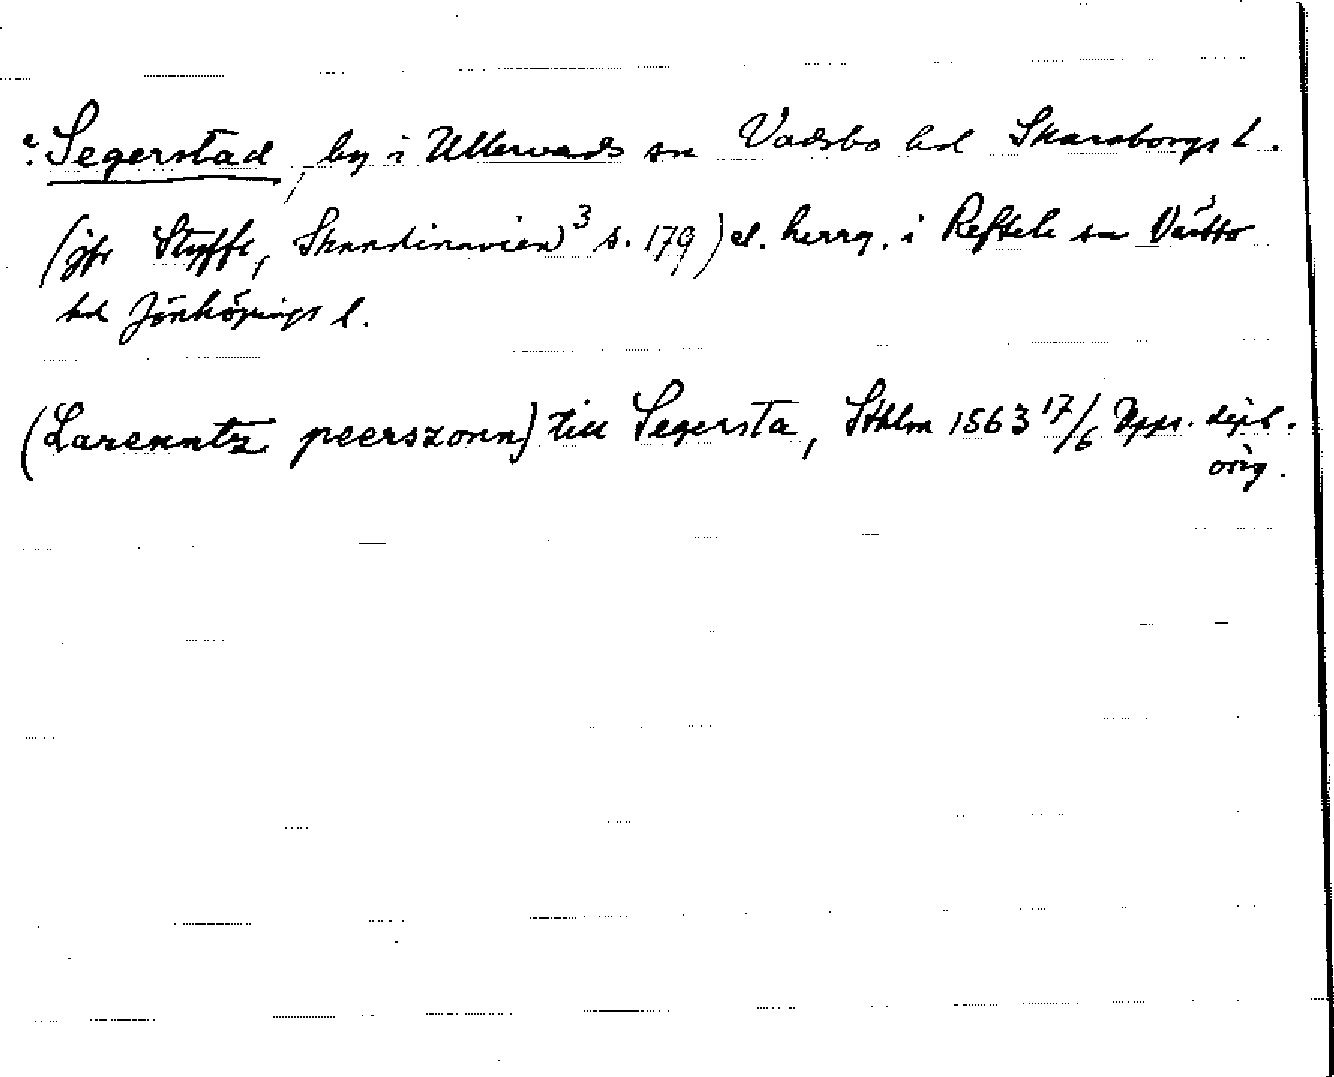 ?: Segerstad, by i Ullervads sn Vadsbo hd Skaraborgs l.
(jfr Styffe, Skandinavien³ s. 179) el. herrg. i Reftele sn Västbo
hd Jönköpings l.
(Larenntz peerszonn) till Segersta, Sthlm 1563 17/6 Upps. dipl.
orig.